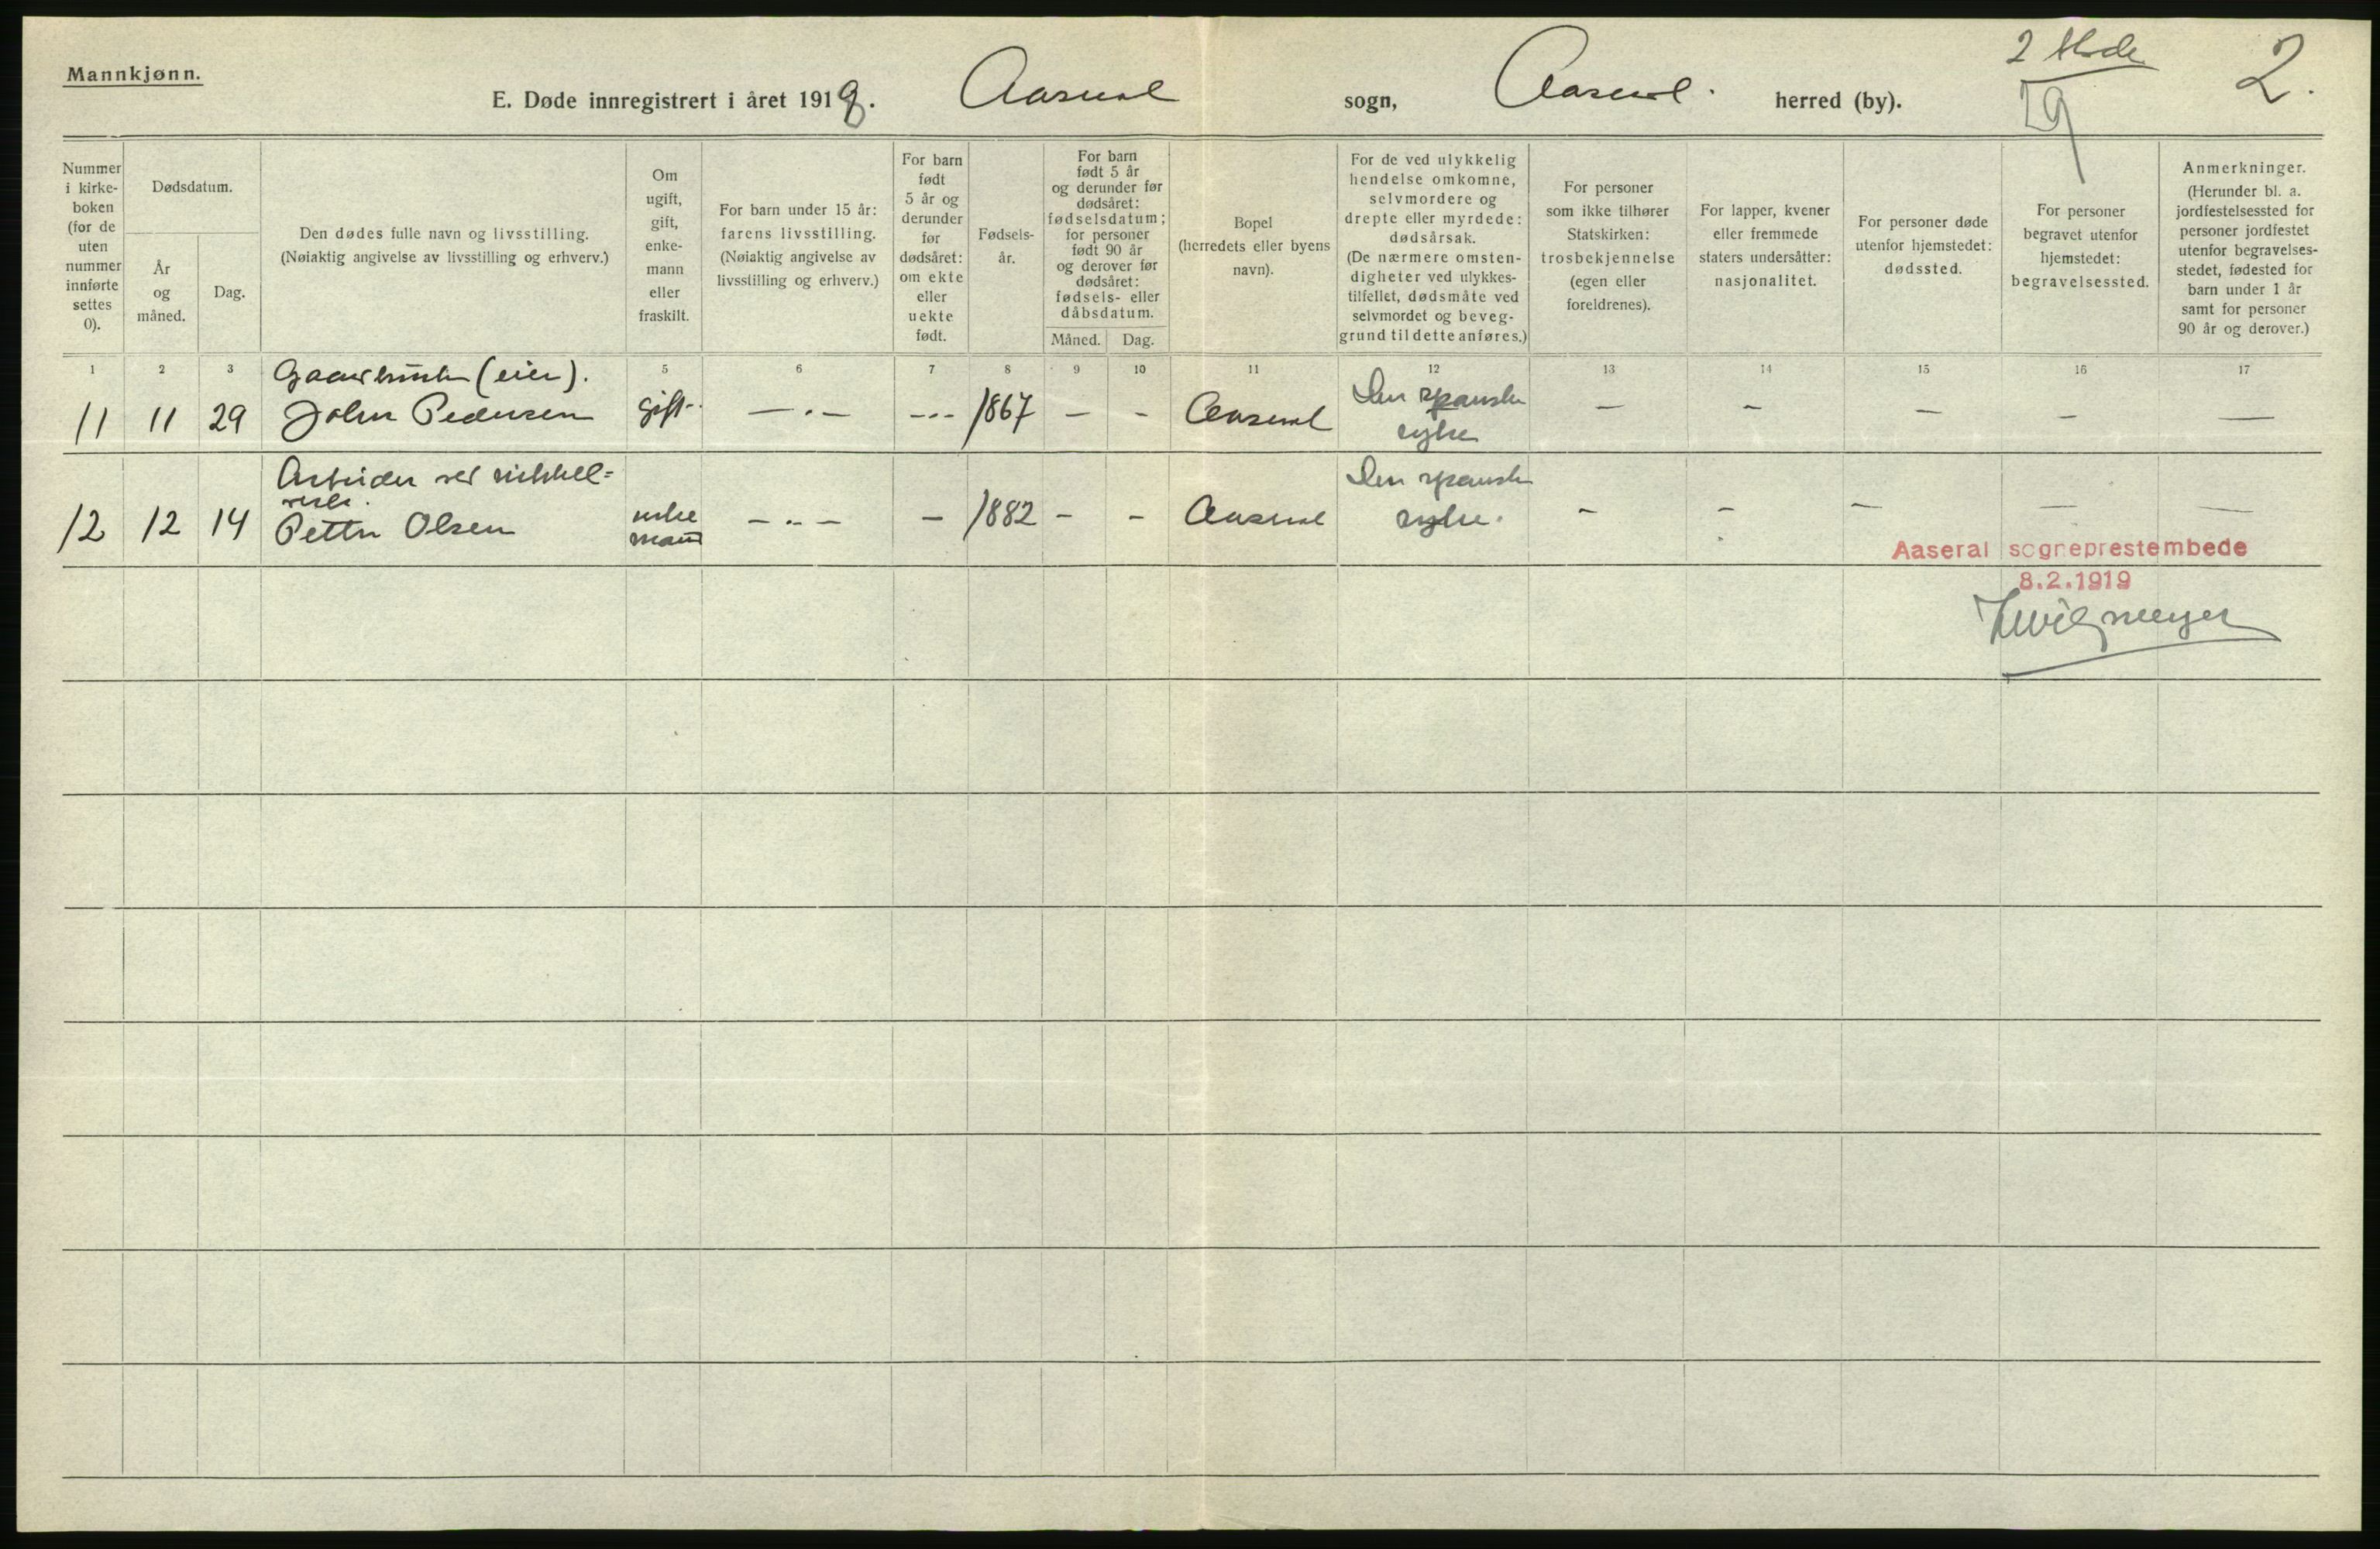 Mannkjønn.
E. Døde innregistrert i året 1918. Aaseral sogn, Aaseral herred (by).
2
2.
Nummer i kirkeboken (for de uten nummer innførte settes 0).
Dødsdatum.
År og måned.
Dag.
Den dødes fulle navn og livsstilling.
(Nøiaktig angivelse av livsstilling og erhverv.)
Om ugift, gift, enkemann eller fraskilt.
For barn under 15 år: farens livsstilling.
(Nøiaktig angivelse av livsstilling og erhverv.)
For barn født 5 år og derunder før dødsåret: om ekte eller uekte født.
Fødselsår.
For barn født 5 år og derunder før dødsåret: fødselsdatum; for personer født 90 år og derover før dødsåret: fødsels- eller dåbsdatum.
Måned.
Dag.
Bopel
(herredets eller byens navn).
For de ved ulykkelig hendelse omkomne, selvmordere og drepte eller myrdede: dødsårsak.
(De nærmere omstendigheter ved ulykkestilfellet, dødsmåte ved selvmordet og beveggrund til dette anføres.)
For personer som ikke tilhører Statskirken: trosbekjennelse
(egen eller foreldrenes).
For lapper, kvener eller fremmede staters undersåtter: nasjonalitet.
For personer døde utenfor hjemstedet: dødssted.
For personer begravet utenfor hjemstedet: begravelsessted.
Anmerkninger.
(Herunder bl. a. jordfestelsessted for personer jordfestet utenfor begravelsesstedet, fødested for barn under 1 år samt for personer 90 år og derover.)
1 2 3 5 6 7 8 9 10 11 12 13 14 15 16 17
Gaardbruker (eier).
11 11 29 John Pedersen gift — . — - - - 1867 — - Aaseral Den spanske syke — - — — —
Arbeider ved nikkel=
verk.
12 12 14 Petter Olsen enke mand — .. — — 1882 — - Aaseral Den spanske syke. - - — — —
Aaseral sogneprestembede
8.2.1919